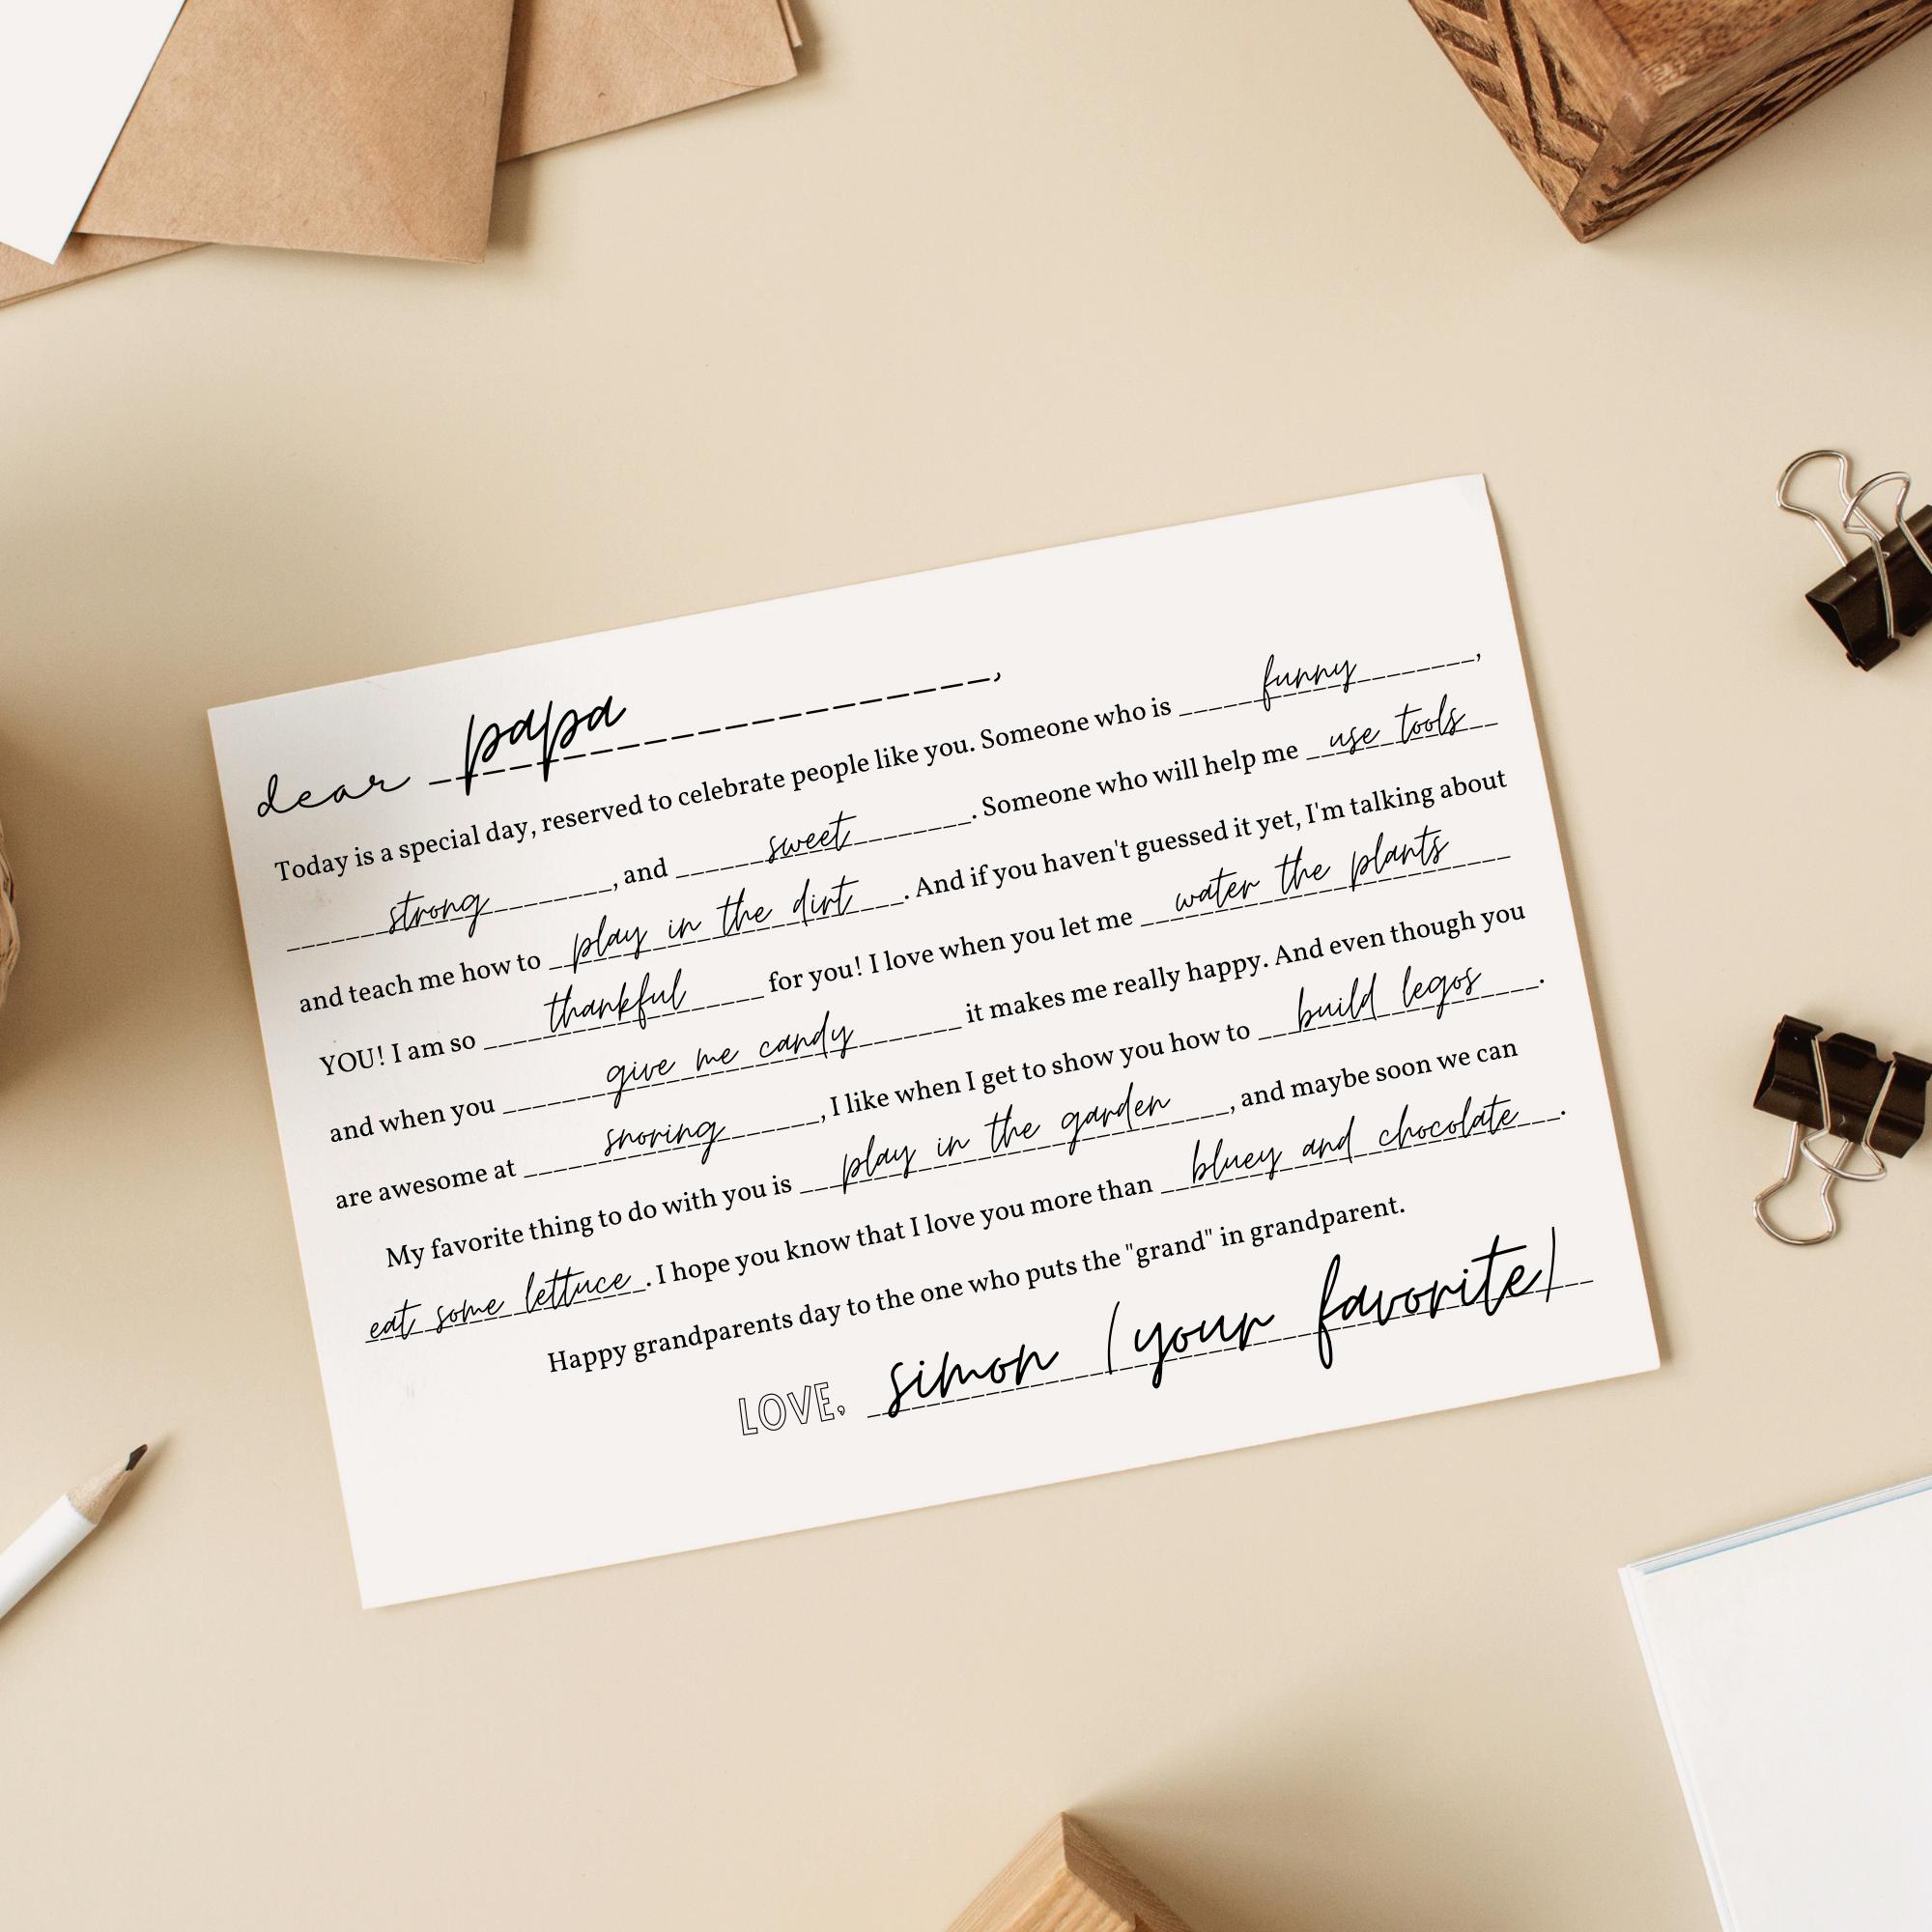 dear papa,
Today is a special day, reserved to celebrate people like you. Someone who is funny,
strong, and sweet. Someone who will help me use tools
and teach me how to play in the dirt. And if you haven't guessed it yet, I'm talking about
YOU! I am so thankful for you! I love when you let me water the plants
and when you give me candy it makes me really happy. And even though you
are awesome at snoring, I like when I get to show you how to build legos.
My favorite thing to do with you is play in the garden, and maybe soon we can
eat some lettuce. I hope you know that I love you more than bluey and chocolate.
Happy grandparents day to the one who puts the "grand" in grandparent.
LOVE, simon (your favorite)